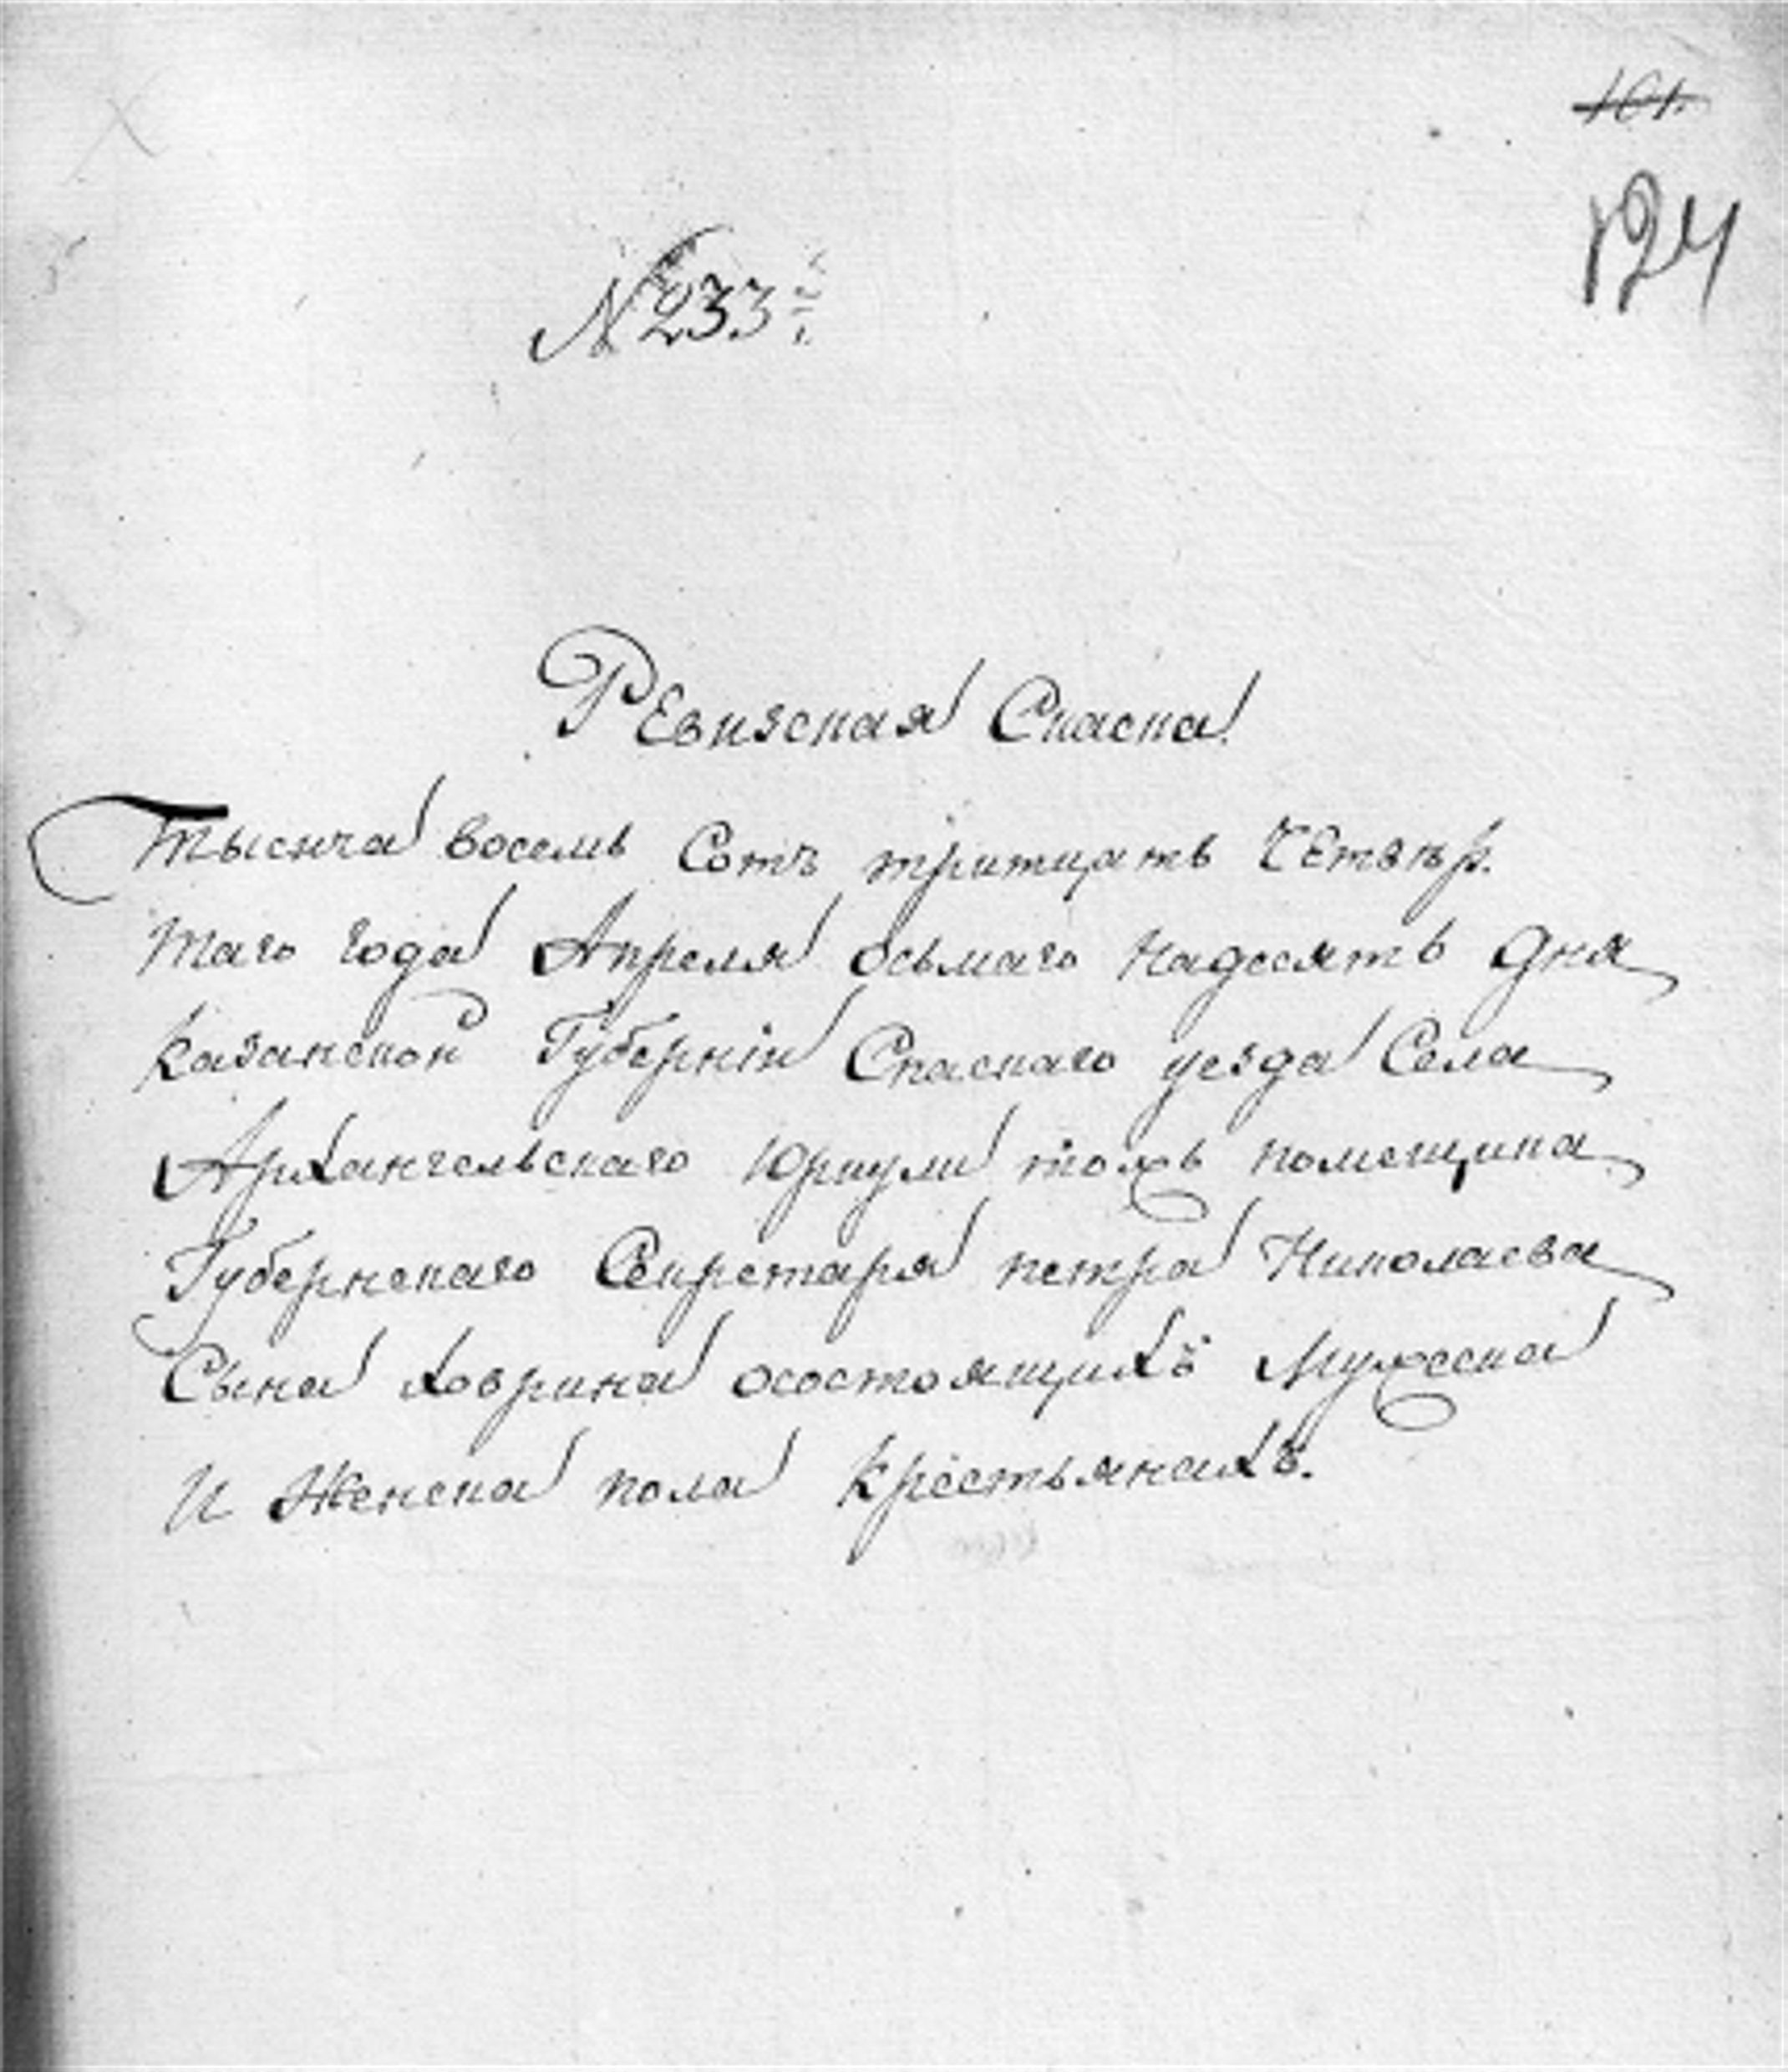 101.
124
№ 233
Ревизская Скаска.
Тысяча восемь Сотъ тритцать Четвѣр.
таго года Апреля осьмаго надесять дня
Казанской Губерніи Спаскаго уезда Села
Архангельскаго Юркули тожъ помещика
Губернскаго Секретаря петра Николаева
Сына Ховрина осостоящихъ Мужеска
И Женска пола Крестьянахъ.